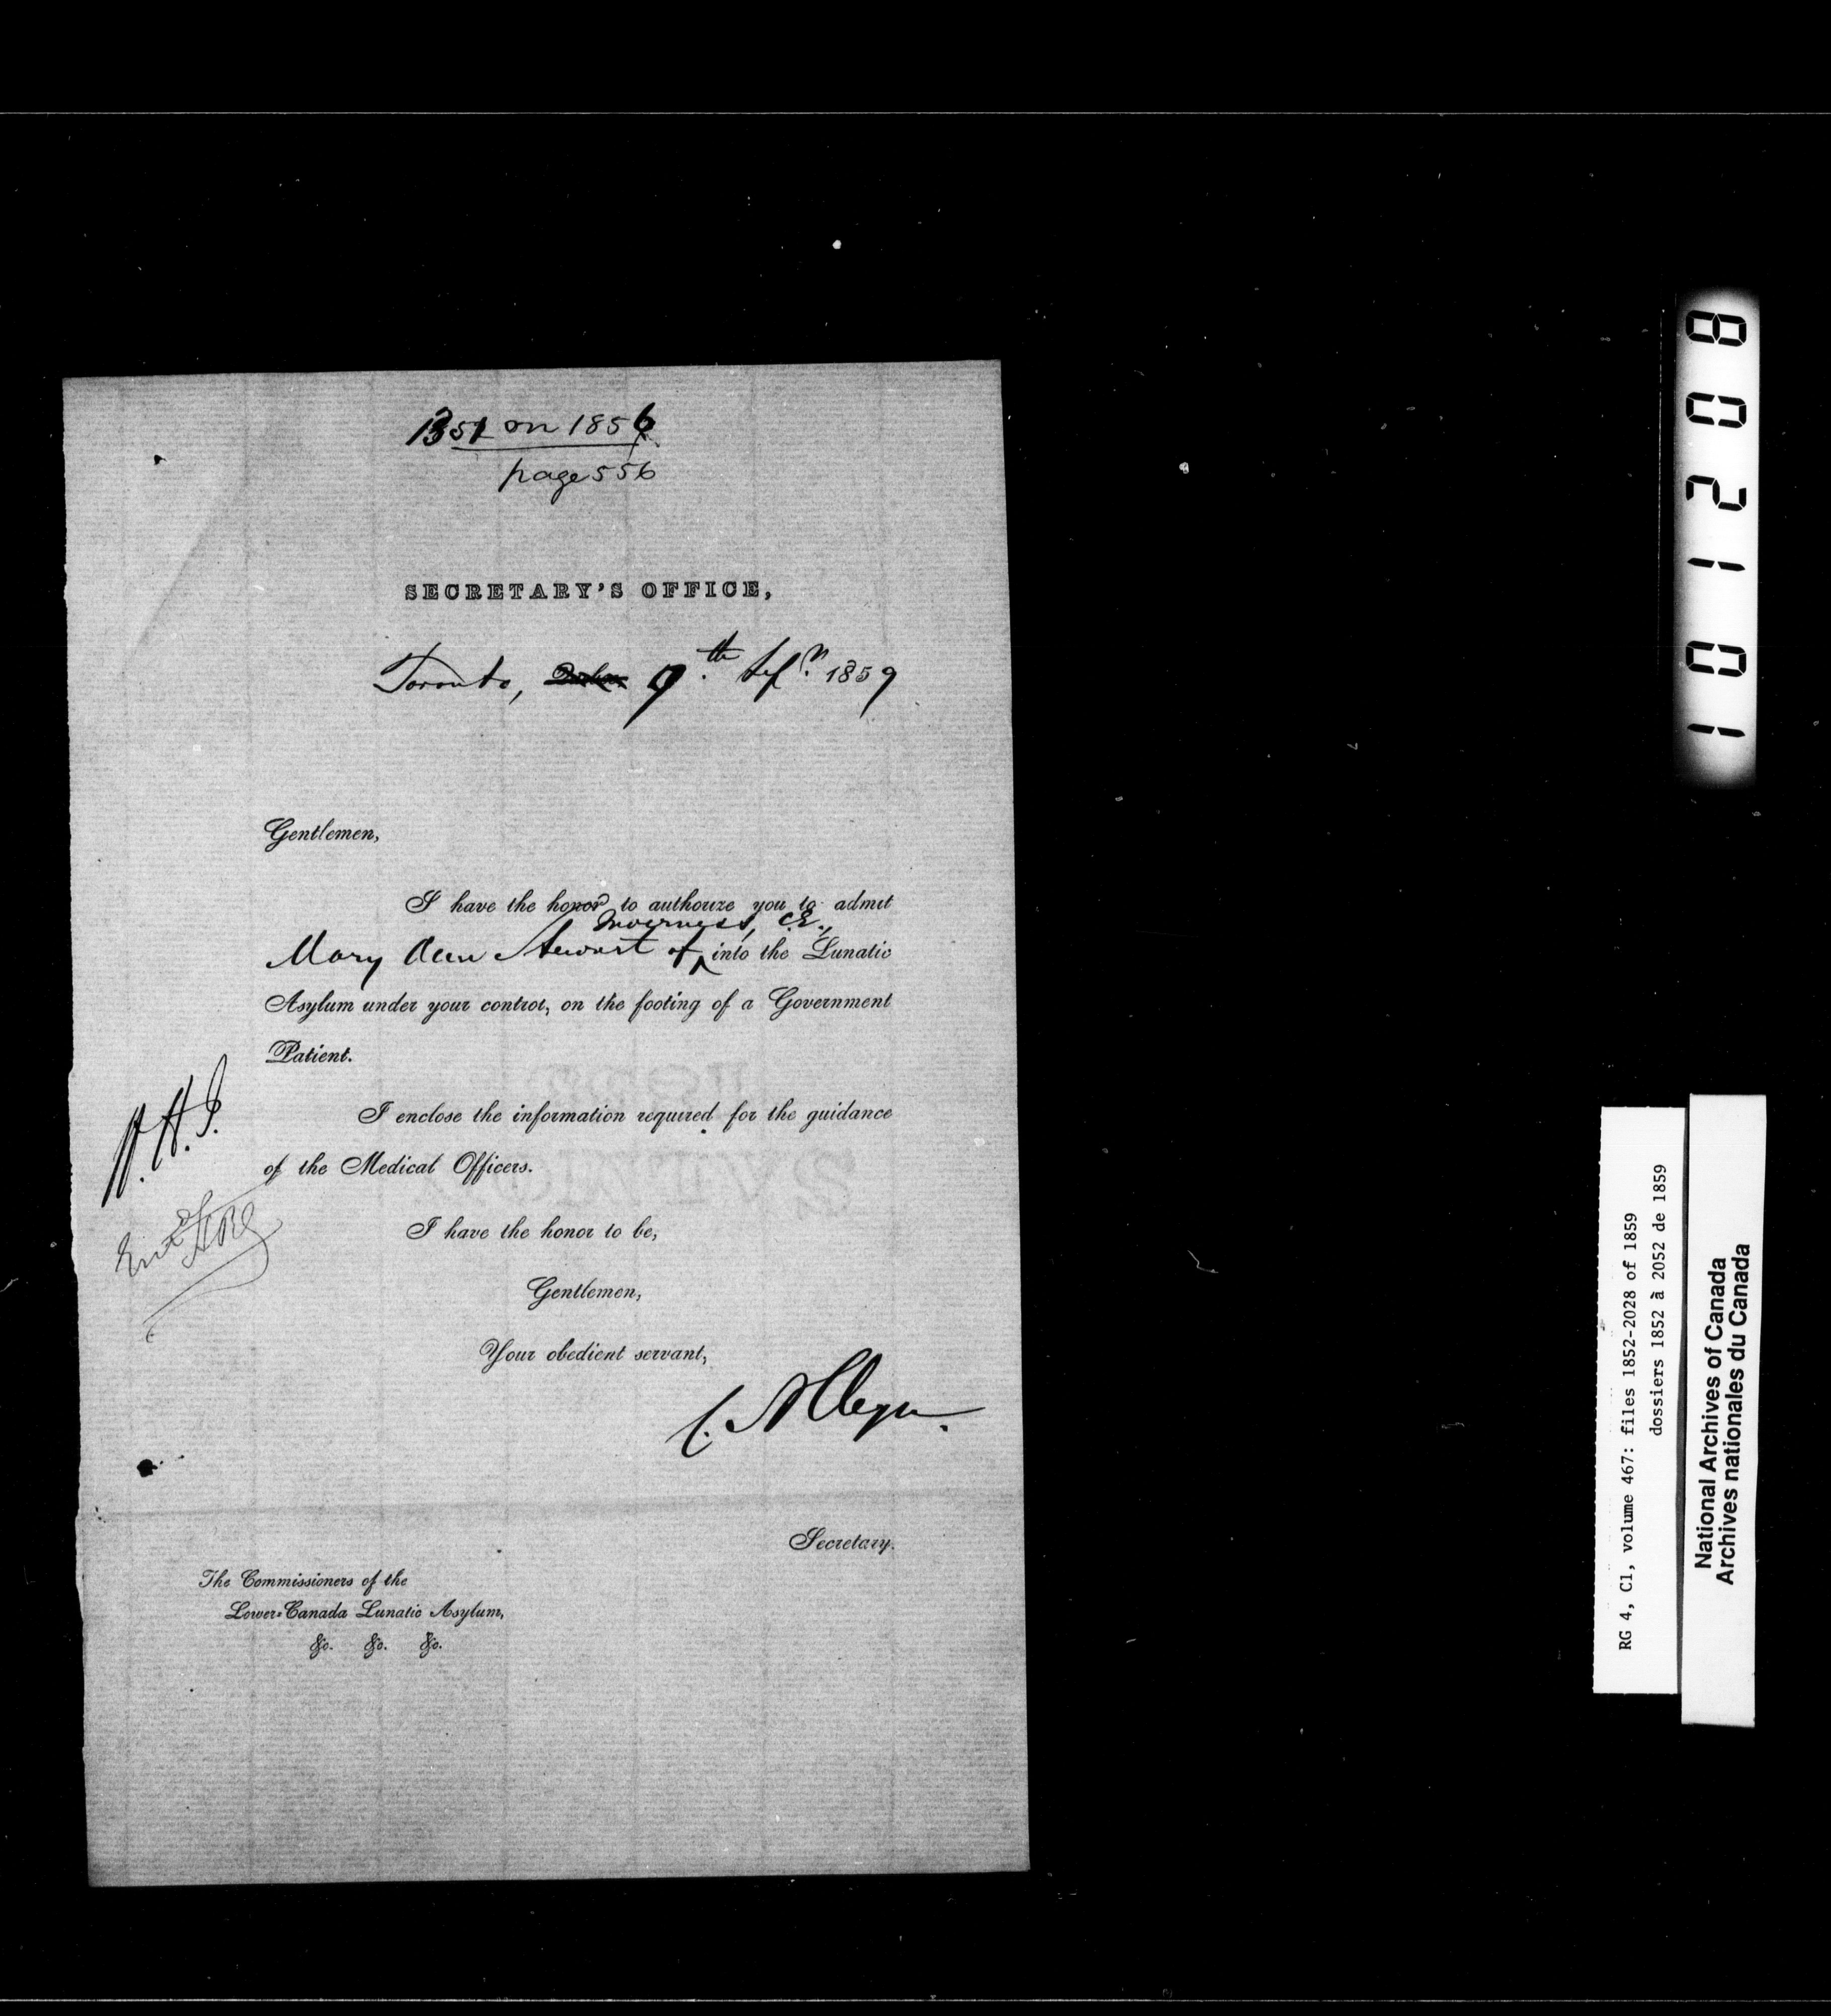 1351 on 1856
page 556
SECRETARY'S OFFICE,
Toronto, 9th 1859
Gentlemen,
I have the honor to authorize you to admit
Inverness, C.E.,
Mary Ann Stewart of into the Lunatic
Asylum under your control, on the footing of a Government
Patient.
I enclose the information required for the guidance
of the Medical Officers.
I have the honor to be,
Gentlemen,
Your obedient servant,
C. Alleyn
Secretary.
The Commissioners of the
Lower-Canada Lunatic Asylum,
&c. &c. &c.
H.H.J.
Entd
101208
RG 4, C1, volume 467: files 1852-2028 of 1859
dossiers 1852 à 2052 de 1859
National Archives of Canada
Archives nationales du Canada